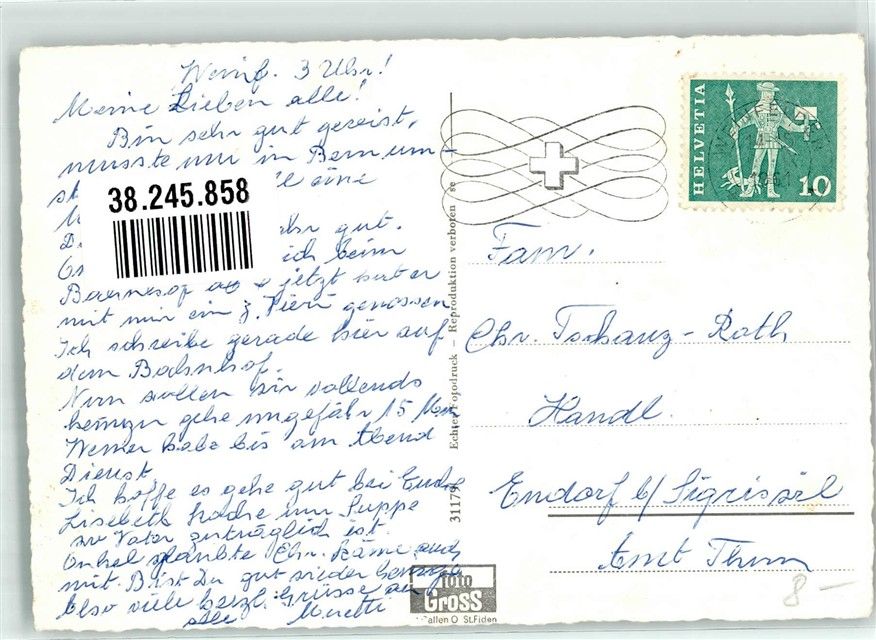 Weinf. 3 Uhr!
Meine Lieben alle!
Bin sehr gut gereist,
musste nur in Bern um-
st
38.245.858
eine
sehr gut.
ich beim
Bahnhof jetzt hat er
mit mir ein z. Vieri genossen
Ich schreibe gerade hier auf
dem Bahnhof.
Nun wollen wir vollends
heimzu gehe ungefähr 15 Min
Werner habe bis am Abend
Dienst.
Ich hoffe es gehe gut bei Euch
Lisebeth koche nur Suppe
wo Vater zuträglich ist.
Onkel glaubte Chr. käme auch
mit. Bist Du gut wieder
Also viele herzl. Grüsse an
alle
Echte Fotodruck – Reproduktion verboten
31179
foto
GROSS
St.Gallen O St.Fiden
HELVETIA
10
Fam.
Chr. Tschanz-Roth
Handl.
Endorf b/ Sigriswil
Amt Thun
8 –